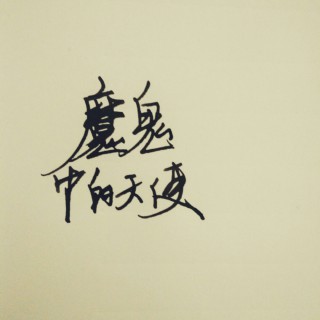 魔鬼
中的天使